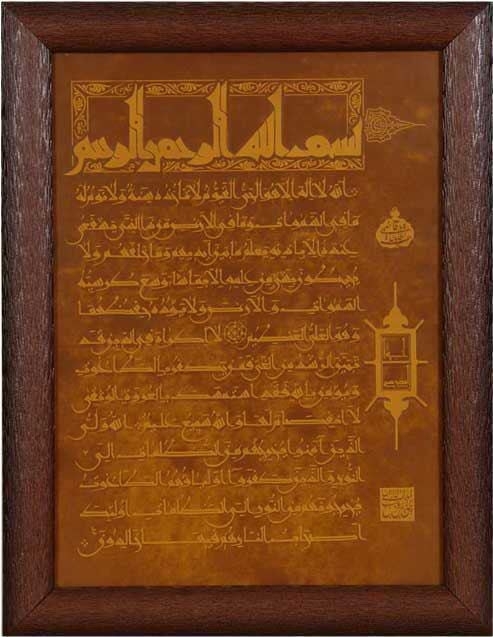 بسم الله الرحمن الرحيم
الله لا اله الا هو الحي القيوم لا تأخذه سنة ولا نوم له
ما في السموات وما في الارض من ذا الذي يشفع
عنده الا باذنه يعلم ما بين ايديهم وما خلفهم ولا
يحيطون بشيء من علمه الا بما شاء وسع كرسيه
السموات والارض ولا يؤده حفظهما
وهو العلي العظيم لا اكراه في الدين قد
تبين الرشد من الغي فمن يكفر بالطاغوت
ويؤمن بالله فقد استمسك بالعروة الوثقى
لا انفصام لها والله سميع عليم الله ولي
الذين آمنوا يخرجهم من الظلمات الى
النور والذين كفروا اولياؤهم الطاغوت
يخرجونهم من النور الى الظلمات اولئك
اصحاب النار هم فيها خالدون